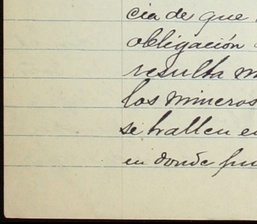 cia de que
obligación
resulta
los mineros
se hallen en
en donde